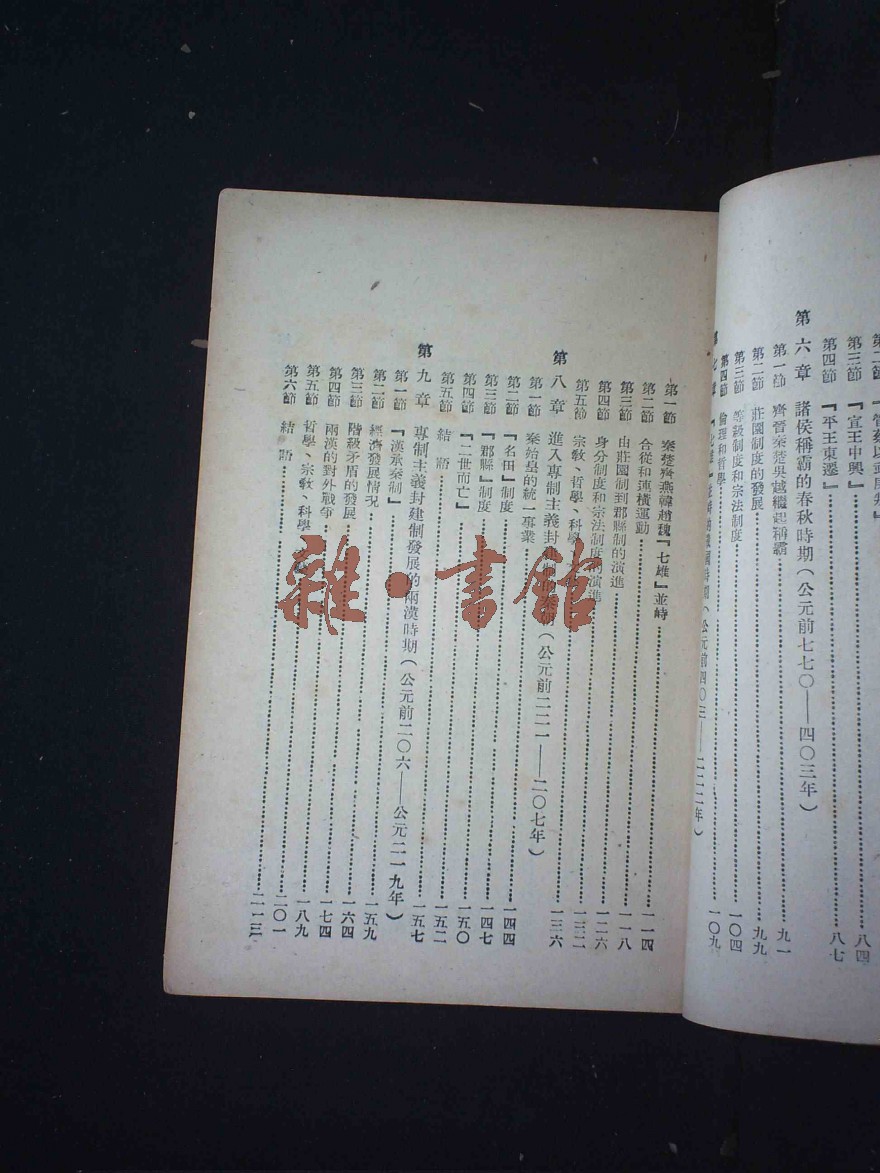 第三節 『宣王中興』……八四
第四節 『平王東遷』……八七
第六章 諸侯稱霸的春秋時期(公元前七七〇——四〇三年)
第一節 齊晉秦楚吳越繼起稱霸……九一
第二節 莊園制度的發展……九九
第三節 等級制度和宗法制度……一〇四
第四節 倫理和哲學……一〇九
第七章 『七雄』並峙的戰國時期(公元前四〇三——二二二年)
第一節 秦楚齊燕韓趙魏『七雄』並峙……一一四
第二節 合從和連橫運動……一一八
第三節 由莊園制到郡縣制的演進……一二六
第四節 身分制度和宗法制度的演進……一三二
第五節 宗教、哲學、科學……一三六
第八章 進入專制主義封建制(公元前二二一——二〇七年)
第一節 秦始皇的統一事業……一四四
第二節 『名田』制度……一四七
第三節 『郡縣』制度……一五〇
第四節 『二世而亡』……一五二
第五節 結語……一五七
第九章 專制主義封建制發展的兩漢時期(公元前二〇六——公元二一九年)
第一節 『漢承秦制』……一五九
第二節 經濟發展情況……一六四
第三節 階級矛盾的發展……一七四
第四節 兩漢的對外戰爭……一八九
第五節 哲學、宗教、科學……二〇一
第六節 結語……二一三
雜·書館